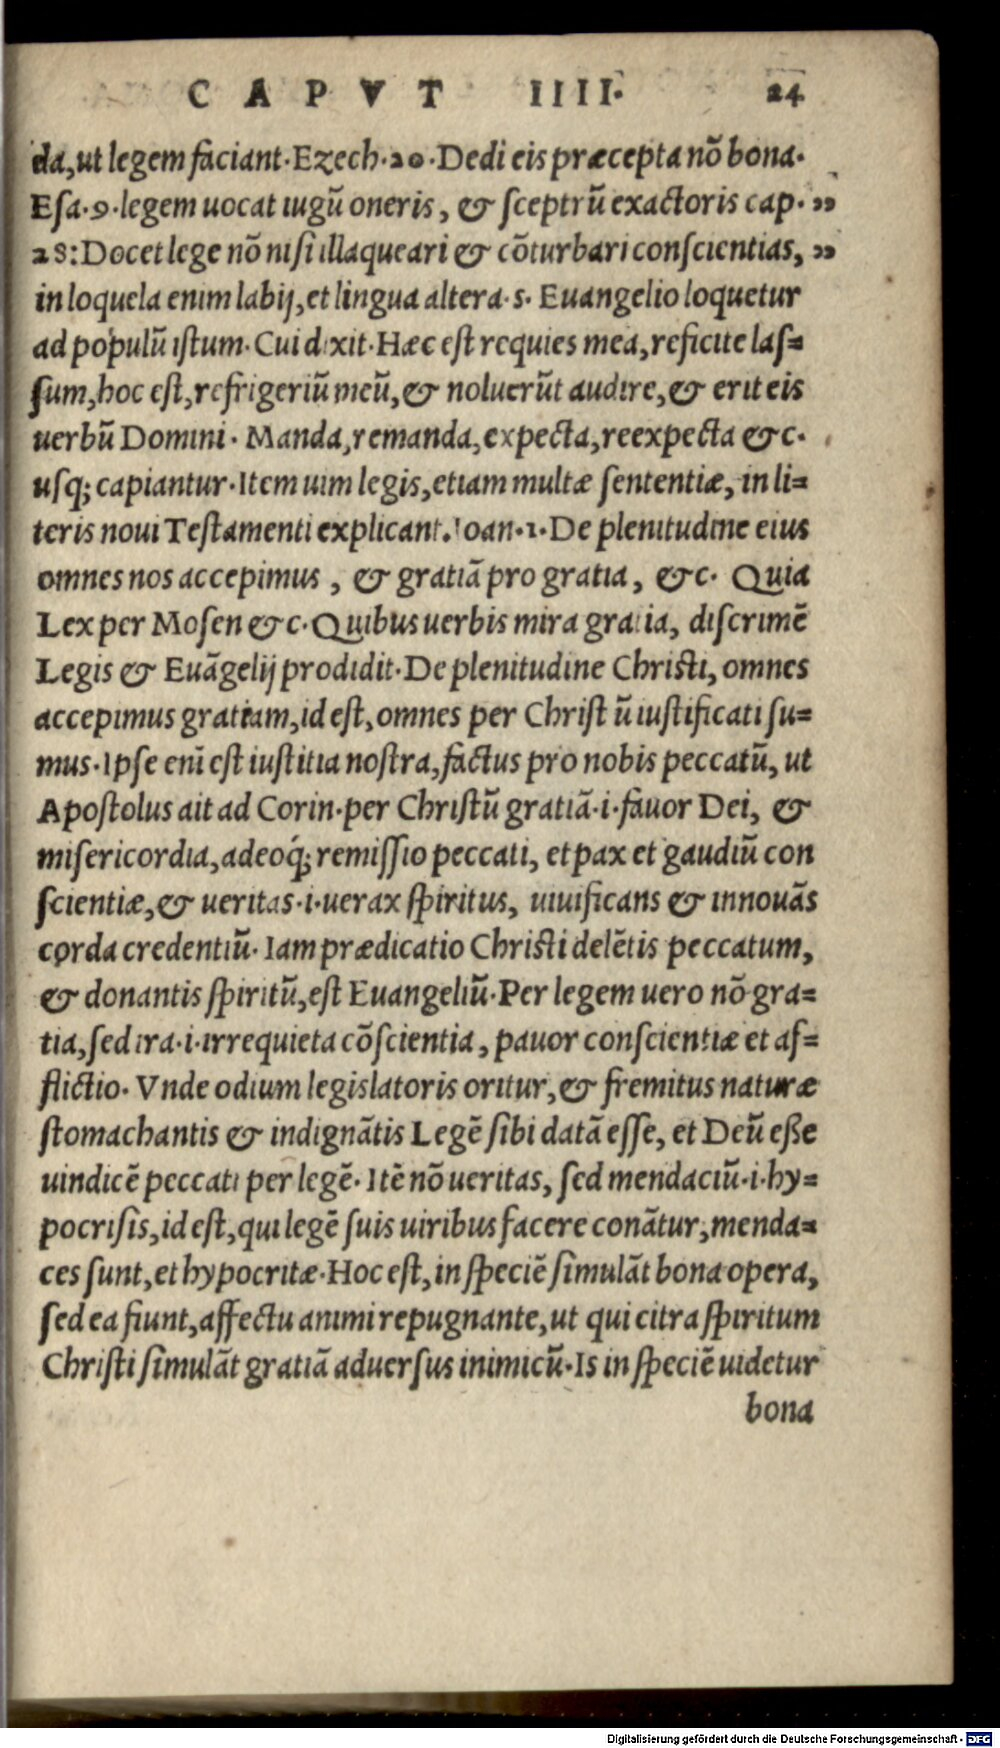 CAPVT IIII. 24
da, ut legem faciant. Ezech. 20. Dedi eis præcepta nõ bona.
Esa. 9. legem uocat iugũ oneris, & sceptrũ exactoris cap. ”
28: Docet lege nõ nisi illaqueari & cõturbari conscientias, ”
in loquela enim labij, et lingua altera. s. Euangelio loquetur
ad populũ istum. Cui dixit. Hæc est requies mea, reficite las=
sum, hoc est, refrigeriũ meũ, & noluerũt audire, & erit eis
uerbũ Domini. Manda, remanda, expecta, reexpecta &c.
usq; capiantur. Item uim legis, etiam multæ sententiæ, in li=
teris noui Testamenti explicant. Ioan. 1. De plenitudine eius
omnes nos accepimus, & gratiã pro gratia, &c. Quia
Lex per Mosen &c. Quibus uerbis mira gratia, discrimẽ
Legis & Euãgelij prodidit. De plenitudine Christi, omnes
accepimus gratiam, id est, omnes per Christũ iustificati su=
mus. Ipse enĩ est iustitia nostra, factus pro nobis peccatũ, ut
Apostolus ait ad Corin. per Christũ gratiã. i. fauor Dei, &
misericordia, adeoq́; remissio peccati, et pax et gaudiũ con
scientiæ, & ueritas. i. uerax spiritus, uiuificans & innouãs
corda credentiũ. Iam prædicatio Christi delẽtis peccatum,
& donantis spiritũ, est Euangeliũ. Per legem uero nõ gra=
tia, sed ira. i. irrequieta cõscientia, pauor conscientiæ et af=
flictio. Vnde odium legislatoris oritur, & fremitus naturæ
stomachantis & indignãtis Legẽ sibi datã esse, et Deũ eße
uindicẽ peccati per legẽ. Itẽ nõ ueritas, sed mendaciũ. i. hy=
pocrisis, id est, qui legẽ suis uiribus facere conãtur, menda=
ces sunt, et hypocritæ. Hoc est, in speciẽ simulãt bona opera,
sed ea fiunt, affectu animi repugnante, ut qui citra spiritum
Christi simulãt gratiã aduersus inimicũ. Is in speciẽ uidetur
bona
Digitalisierung gefördert durch die Deutsche Forschungsgemeinschaft - DFG